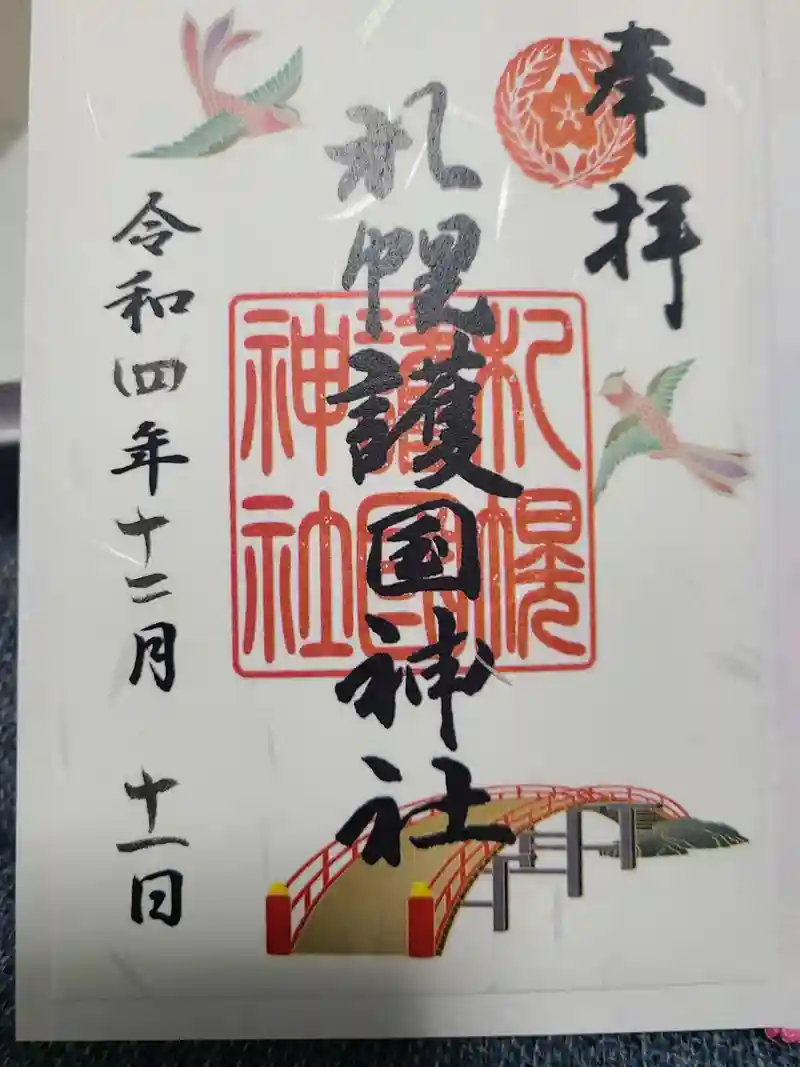 奉拝
札幌護国神社
札幌
護國
神社
令和四年十二月十一日